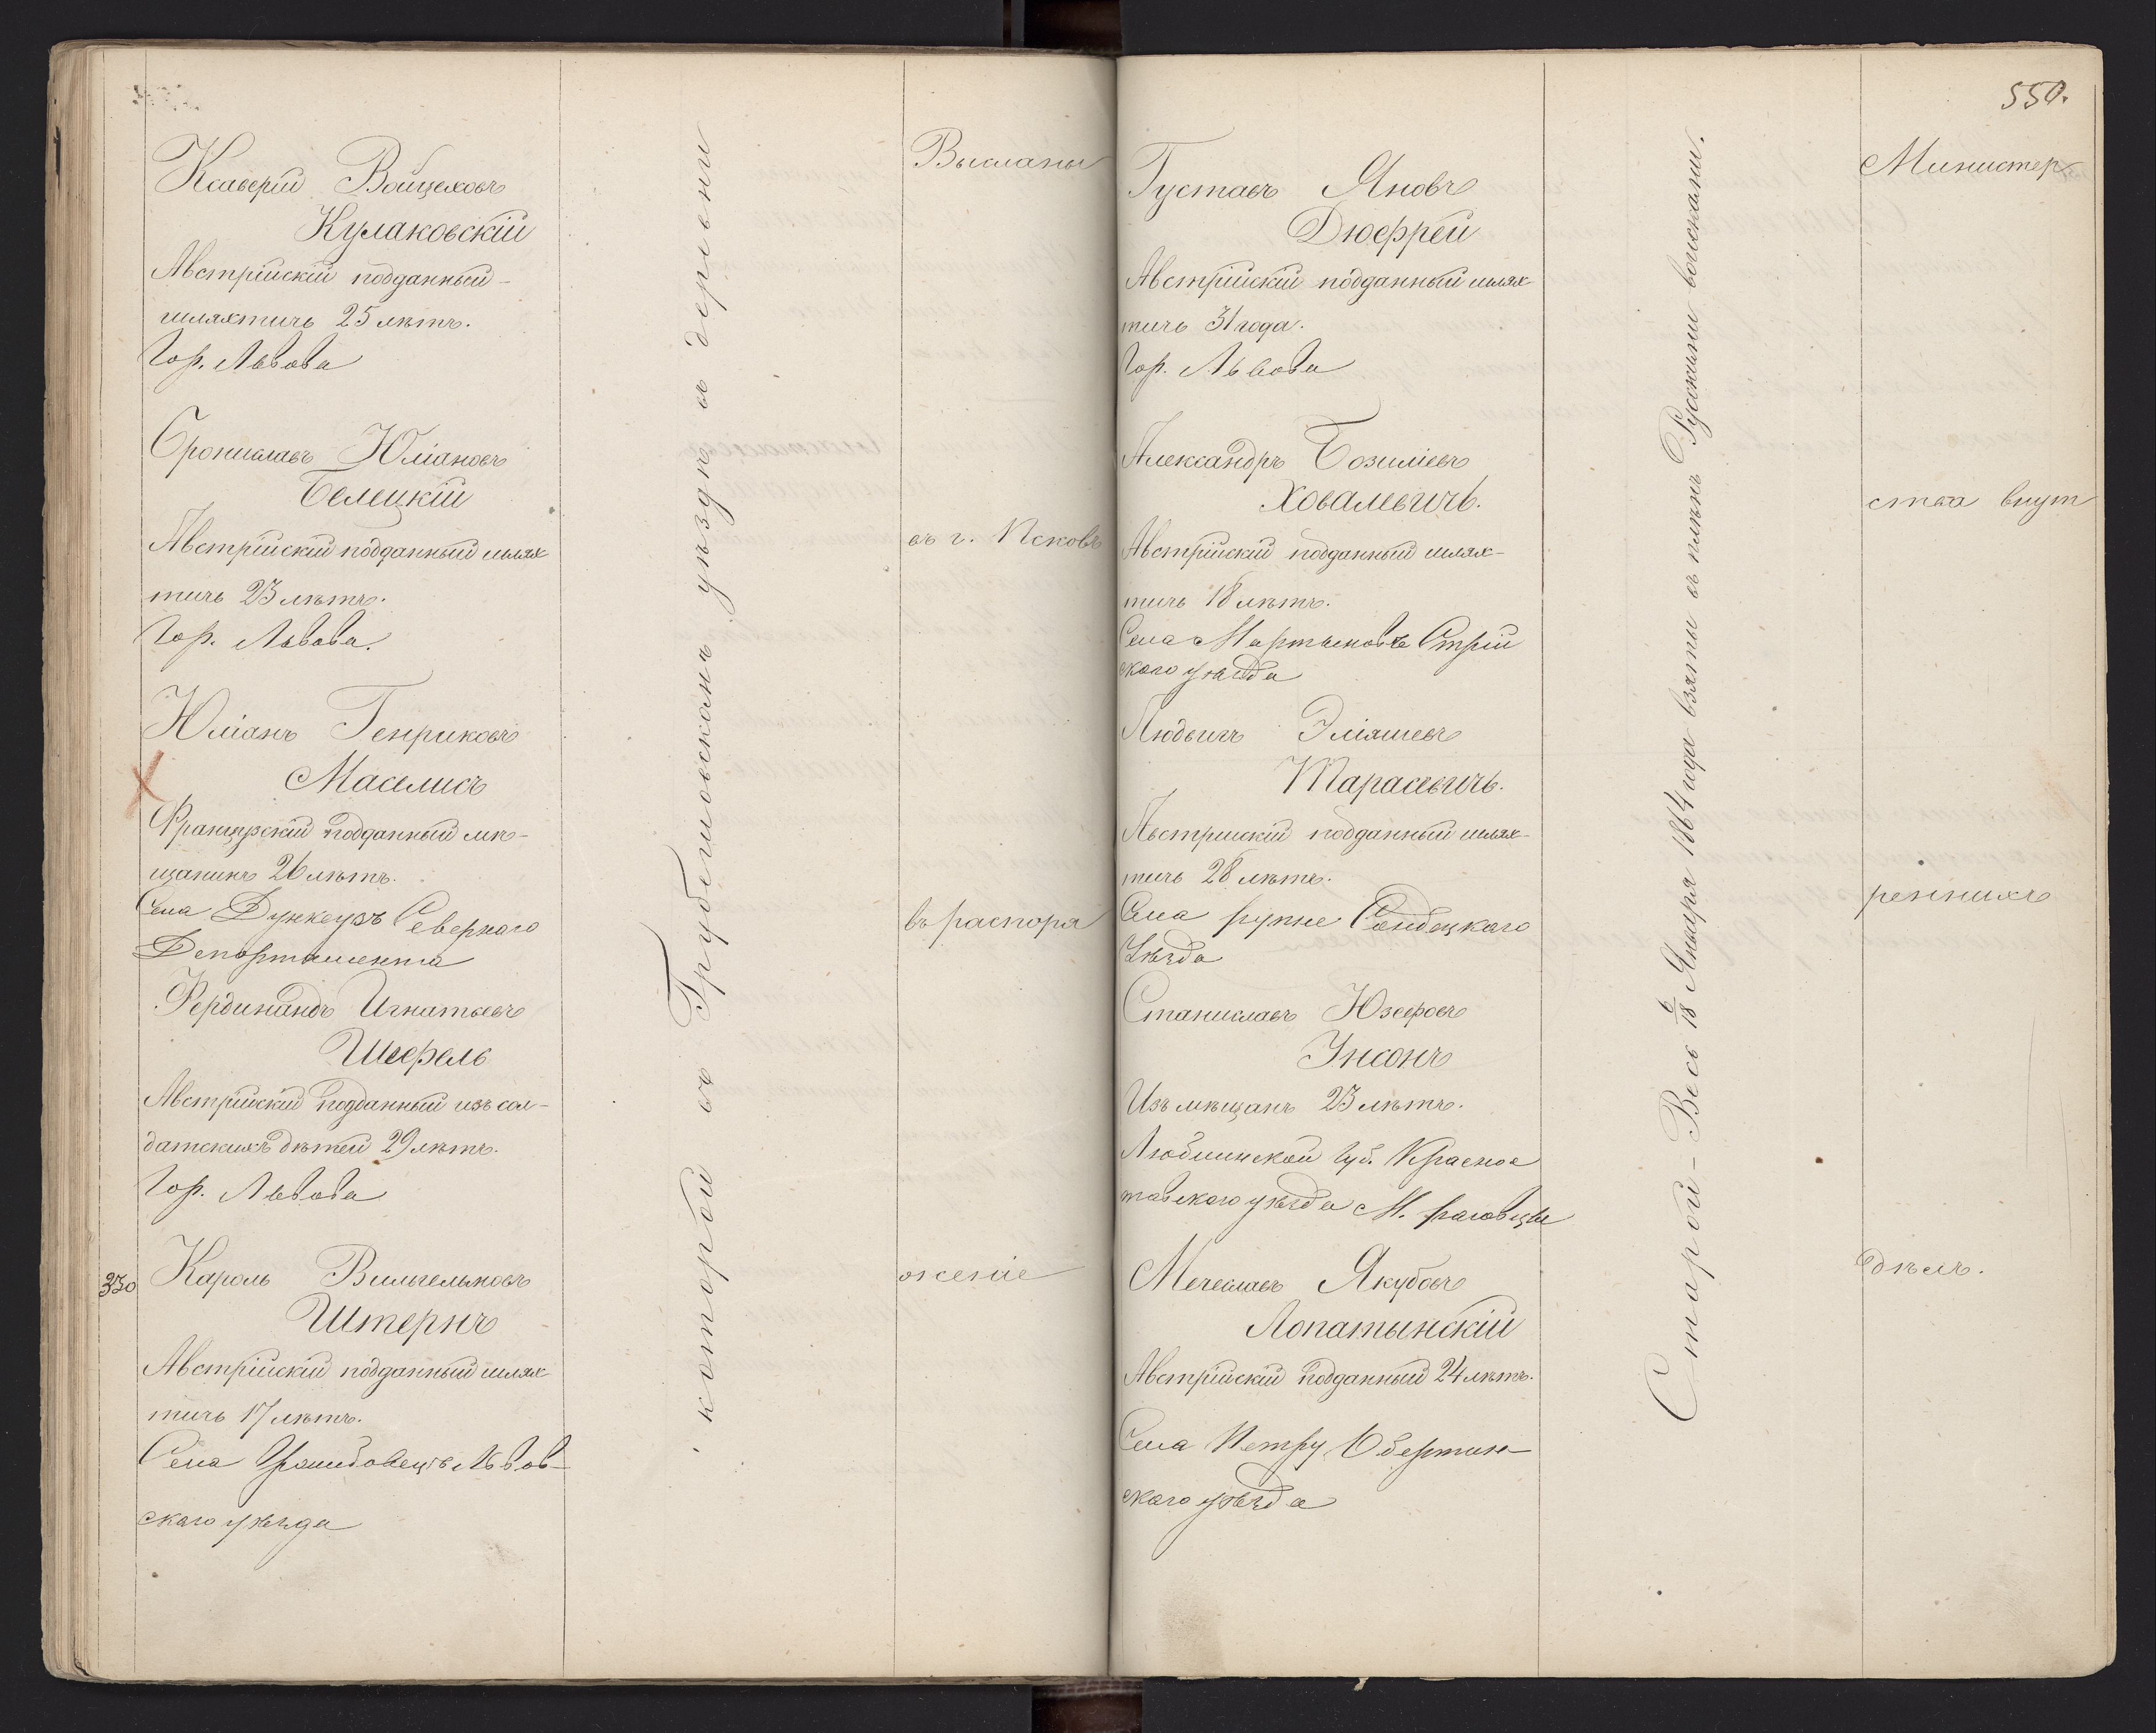 Ксаверій Войцеховъ
Кулаковскій
Австрійскій подданный
шляхтичь 25 лѣтъ.
Гор. Львова
Брониславъ Юліановъ
Белецкій
Австрійскій подданный шлях
тичь 23 лѣтъ.
Гор. Львова.
Юліанъ Генриковъ
Маселисъ
Французскій подданный мѣ-
щанинъ 26 лѣтъ.
Села Дункеръ Северного
Департамента
Фердинандъ Игнатьевъ
Шефель
Австрійскій подданный изъ сол-
датскихъ дѣтей 29 лѣтъ.
Гор. Львова
330
Кароль Вильгельмовъ
Штернъ
Австрійскій подданный шлях
тичь 17 лѣтъ.
Села Львов-
скаго уѣзда
которой въ Грубешовскомъ уѣздѣ и деревни
Высланы
въ г. Псковъ
въ распоря
женіе
550.
Густавъ Яновъ
Дюффей
Австрійскій подданный шлях
тичь 31 года.
Гор. Львова
Александръ Базиліевъ
Ховалевичь.
Австрійскій подданный шлях-
тичь 18 лѣтъ.
Села Мартыновъ Стрій
скаго уѣзда
Людвигъ Эліяшевъ
Тарасевичь.
Австрійскій подданный шлях-
тичь 28 лѣтъ.
Села Сандецкаго
Уѣзда
Станиславъ Юзефовъ
Энсонъ
Изъ мѣщанъ 23 лѣтъ.
Люблинской Губ. Красное
тавскаго уѣзда М.
Мечеславъ Якубовъ
Лопатынскій
Австрійскій подданный 24 лѣтъ.
Села Петру Обертин-
скаго уѣзда
Старой-Весь 6/18 Января 1864 года взяты въ плѣнъ Русскими войсками.
Министер
ства внут
реннихъ
дѣлъ.